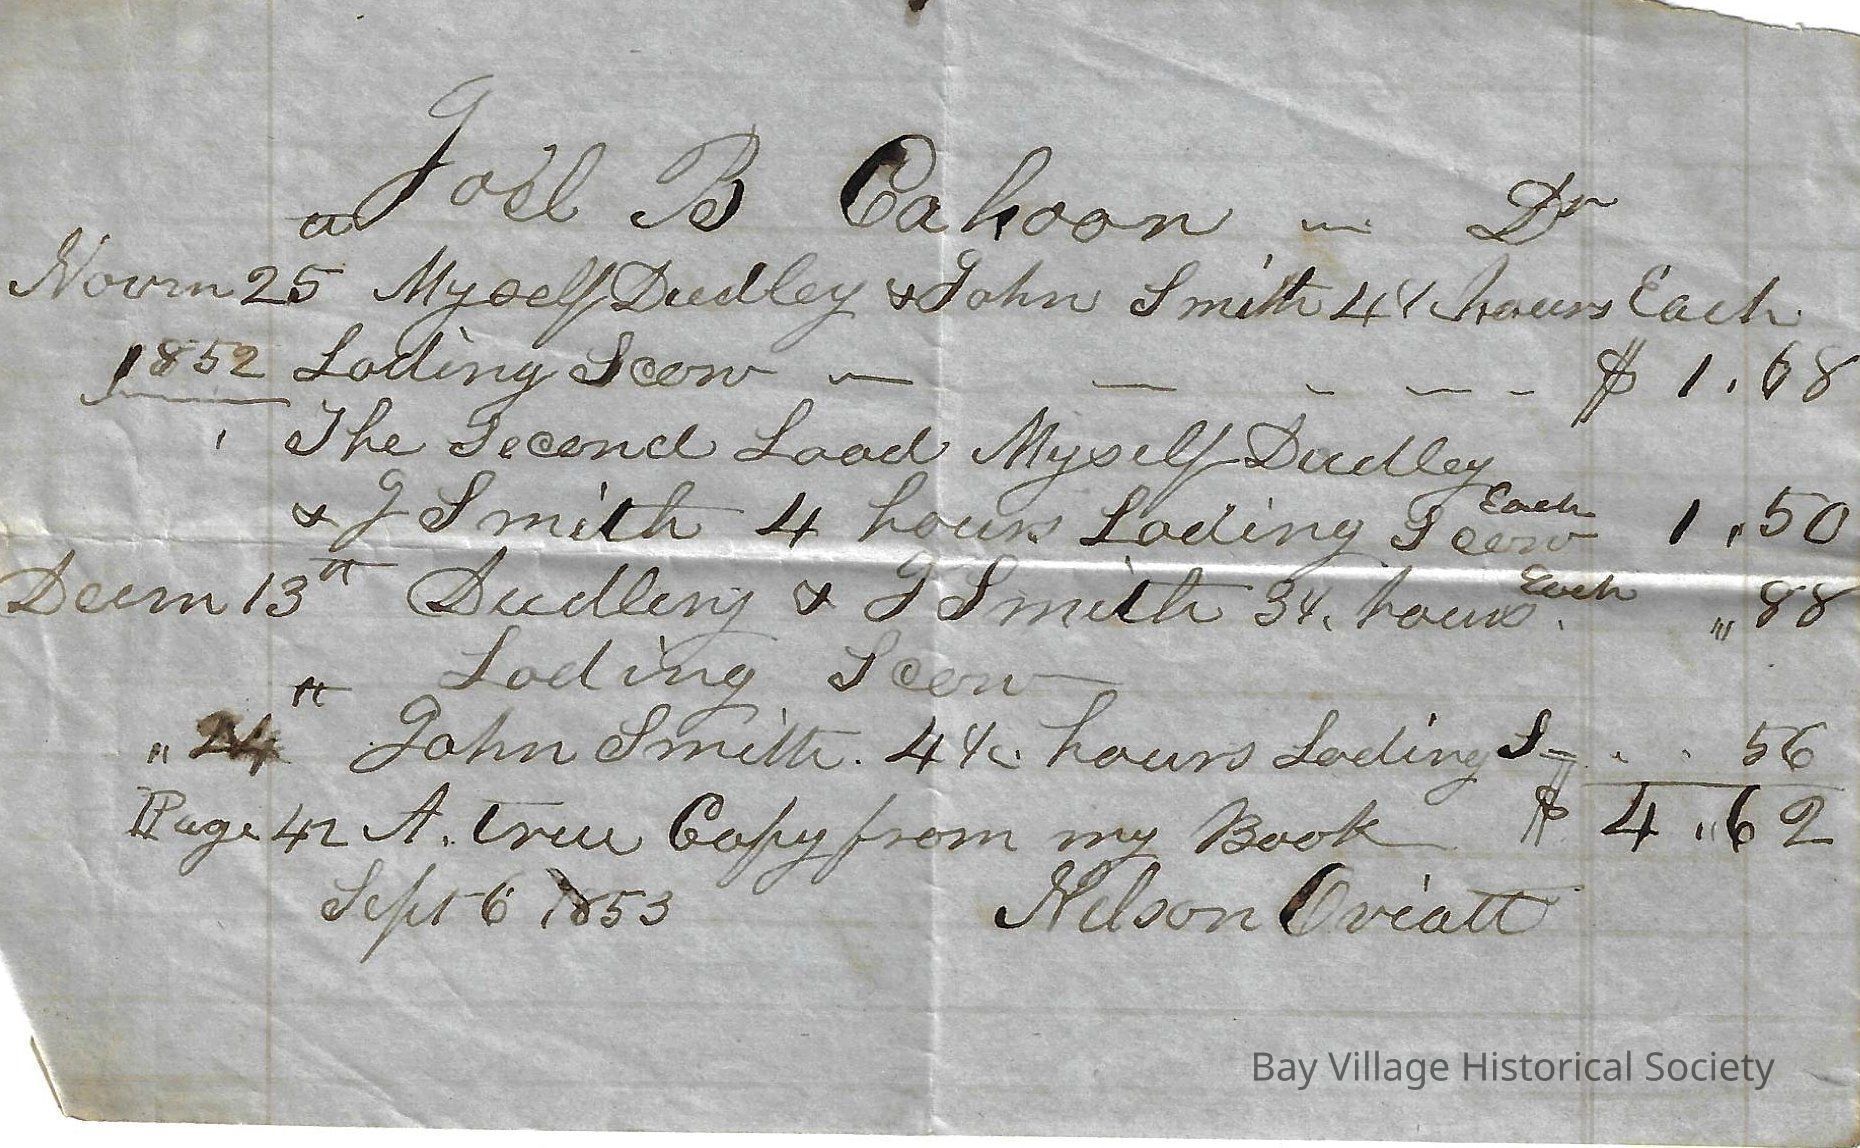 Joel B Cahoon Dr
Novm 25 Myself Dudley & John Smith 4½ hours Each
1852 Loding Scow $ 1.68
The Second Load Myself Dudley
& J Smith 4 hours Loding Scow Each 1,50
Decm 13th Dudley & J Smith 3½ hours Each " 88
Loding Scow
" 24th John Smith. 4½ hours Loding S 56
Page 42 A. true Copy from my Book $ 4.62
Sept 6 1853 Nelson Oviatt
Bay Village Historical Society